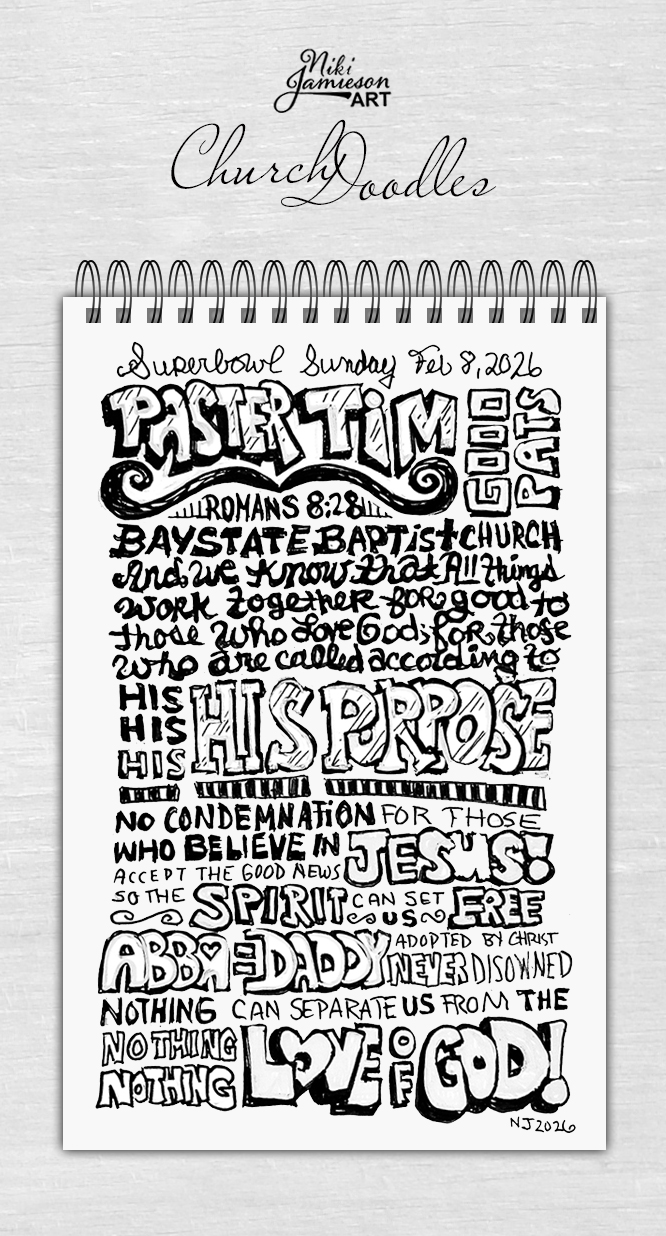 Niki
Jamieson
ART
Church Doodles
Superbowl Sunday Feb 8, 2026
PASTER TiM
GOOD
PATS
ROMANS 8:28
BAYSTATE BAPTiSt CHURCH
And we know that All things
work together for good to
those who love God, for those
who are called according to
HIS
HIS
HIS
HIS PURPOSE
NO CONDEMNATiON FOR THOSE
WHO BELIEVE IN JESUS!
ACCEPT THE GOOD NEWS
SO THE SPIRIT CAN SET
US FREE
ABBA = DADDY ADOPTED BY CHRIST
NEVER DISOWNED
NOTHING CAN SEPARATE US FROM THE
NOTHING
NOTHING
LOVE OF GOD!
NJ2026